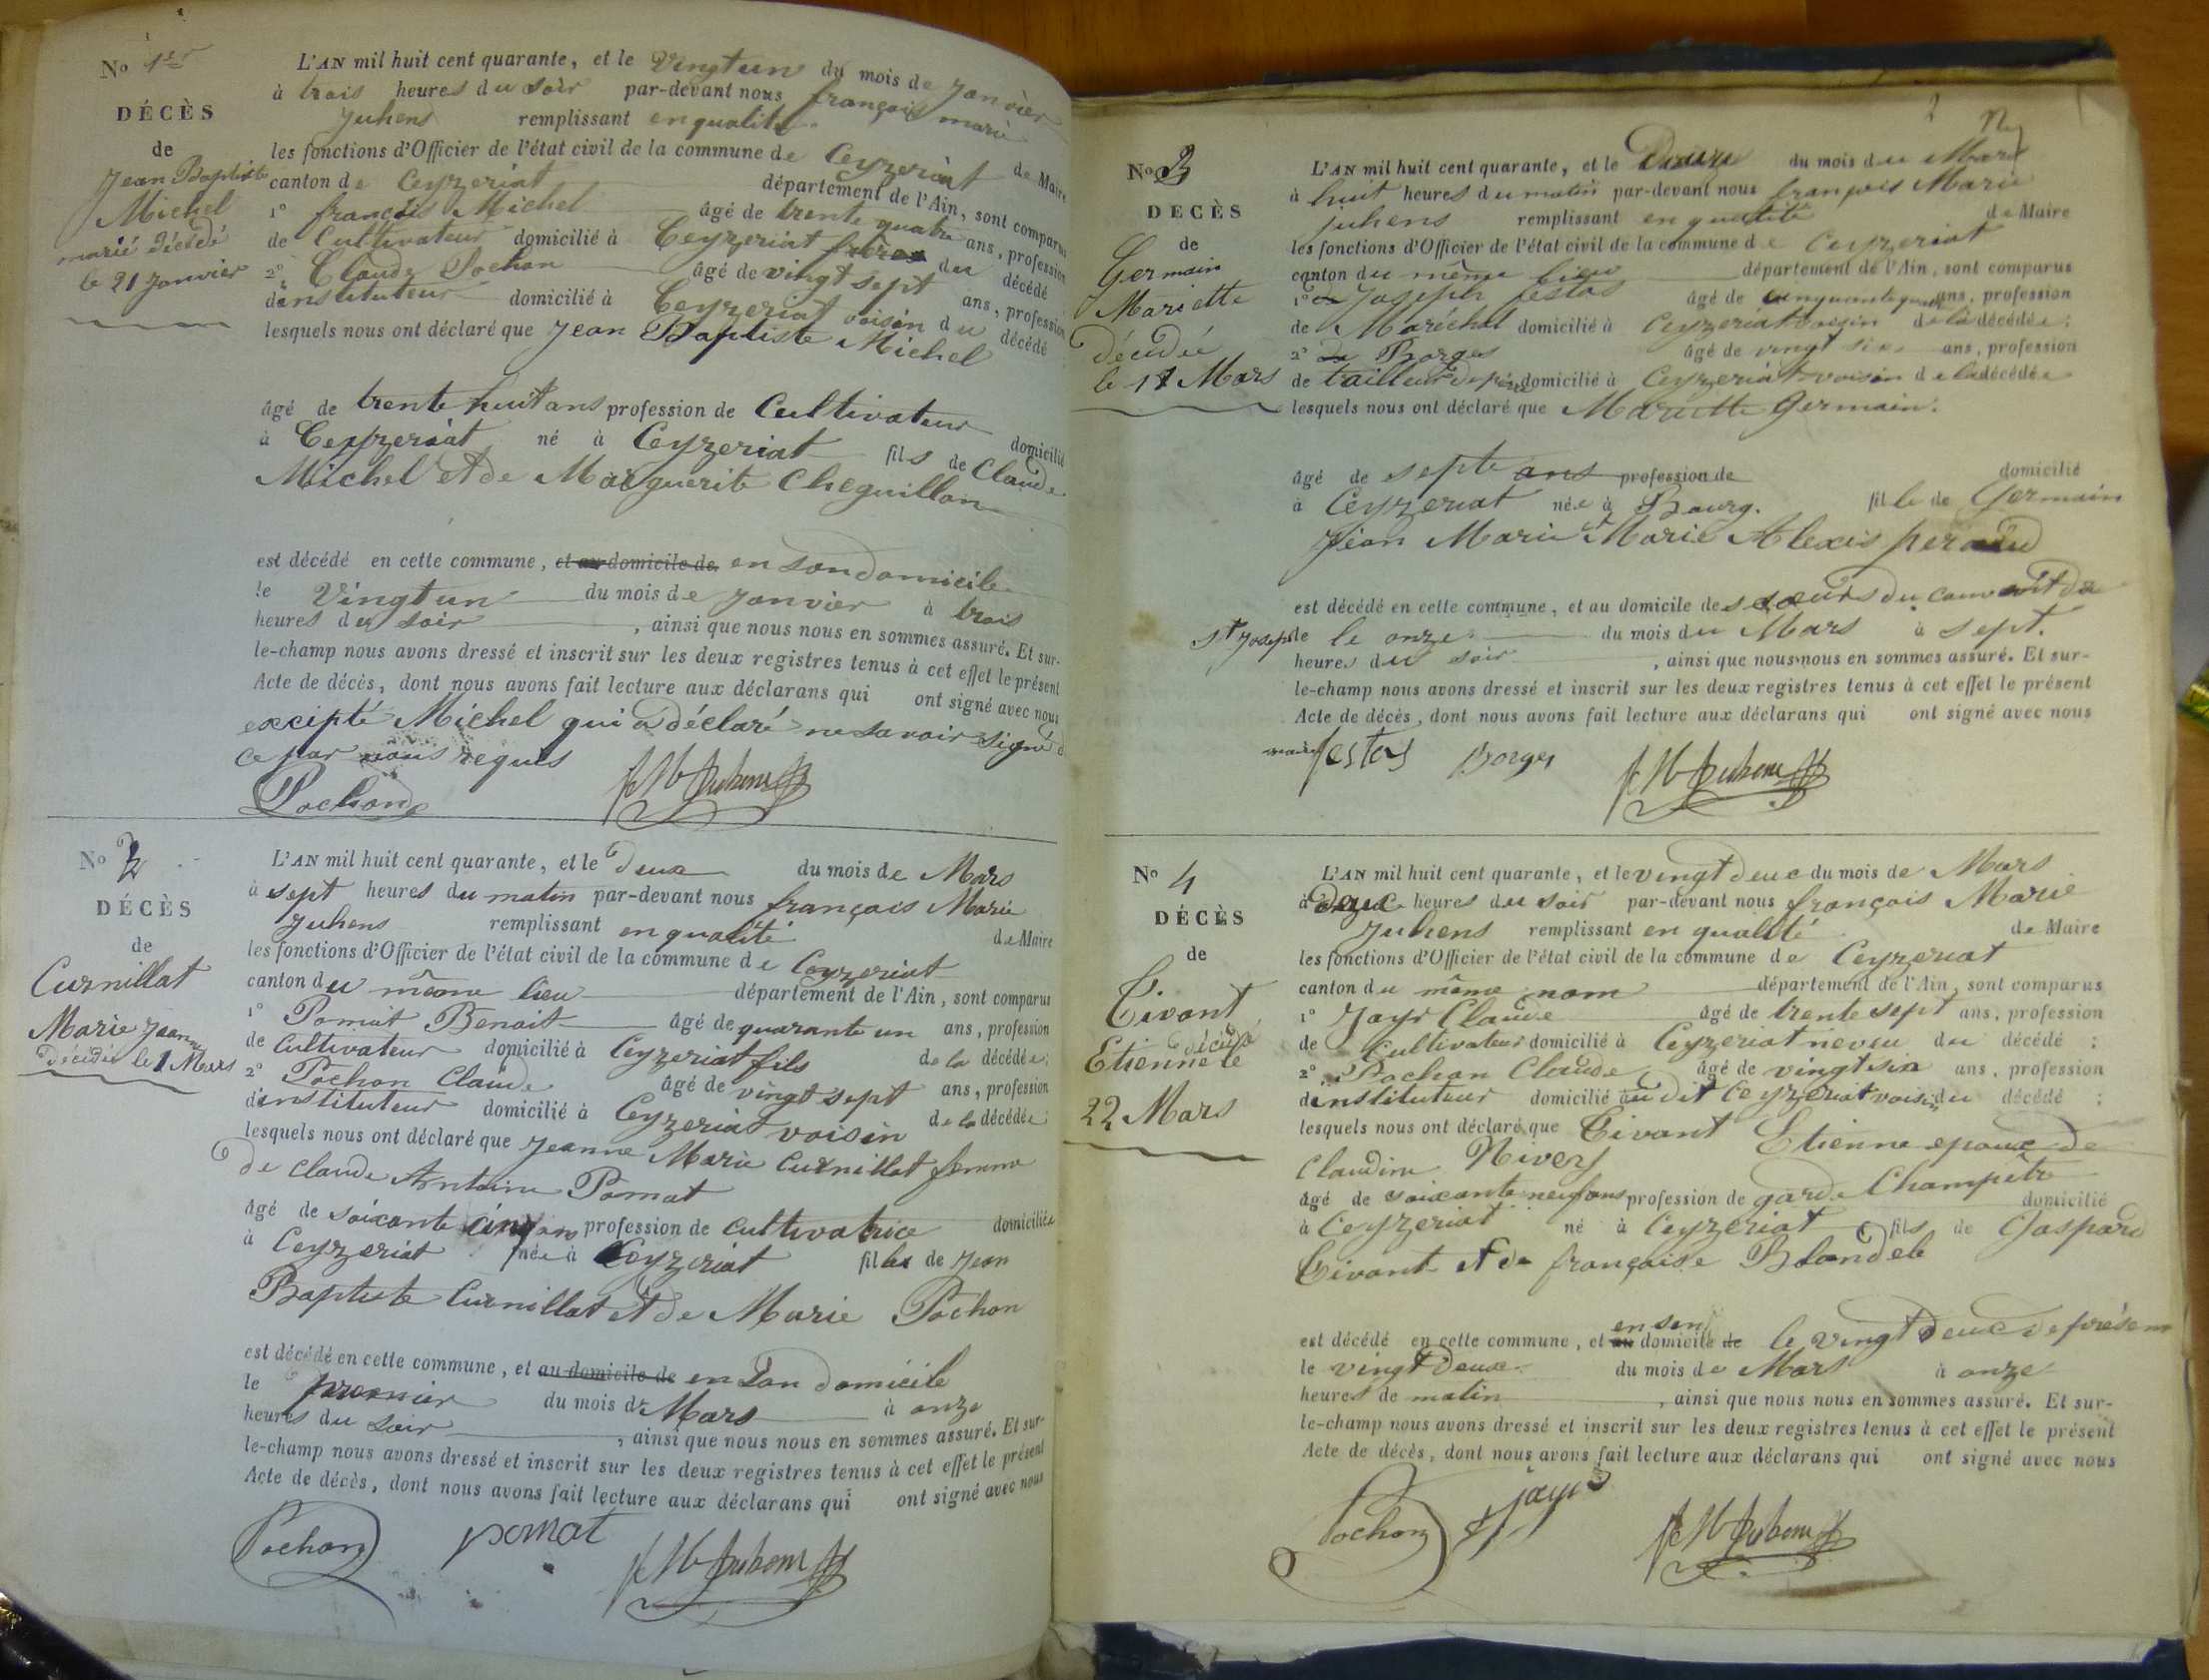 No 1er
DÉCÈS
de
Jean Baptiste
Michel
marié décédé
le 21 Janvier
L'AN mil huit cent quarante, et le Vingt un du mois de Janvier
à trois heures du soir par-devant nous françois marie
Juhens remplissant en qualité de Maire
les fonctions d'Officier de l'état civil de la commune de Ceyzeriat
canton de Ceyzeriat département de l'Ain, sont comparus
1° françois Michel âgé de trente quatre ans, profession
de Cultivateur domicilié à Ceyzeriat frere du décédé
2° Claude Pochon âgé de vingt sept ans, profession
d'instituteur domicilié à Ceyzeriat voisin du décédé
lesquels nous ont déclaré que Jean Baptiste Michel
âgé de trente huit ans profession de Cultivateur domicilié
à Ceyzeriat né à Ceyzeriat fils de Claude
Michel et de Marguerite Cheguillon
est décédé en cette commune, et au domicile de en son domicile
le Vingt un du mois de Janvier à trois
heures du soir, ainsi que nous nous en sommes assuré. Et sur-
le-champ nous avons dressé et inscrit sur les deux registres tenus à cet effet le présent
Acte de décès, dont nous avons fait lecture aux déclarans qui ont signé avec nous
excepté Michel qui a déclaré ne savoir signé d
ce par nous requis
Pochon
No 2
DÉCÈS
de
Curnillat
Marie Jeanne
décédée le 1 Mars
L'AN mil huit cent quarante, et le deux du mois de Mars
à sept heures du matin par-devant nous françois Marie
Juhens remplissant en qualité de Maire
les fonctions d'Officier de l'état civil de la commune de Ceyzeriat
canton du même lieu département de l'Ain, sont comparus
1° Pomat Benoit âgé de quarante un ans, profession
de Cultivateur domicilié à Ceyzeriat fils de la décédée;
2° Pochon Claude âgé de vingt sept ans, profession
d'instituteur domicilié à Ceyzeriat voisin de la décédée;
lesquels nous ont déclaré que Jeanne Marie Curnillat femme
de Claude Antoine Pomat
âgé de soixante cinq ans profession de cultivatrice domiciliée
à Ceyzeriat née à Ceyzeriat fille de Jean
Baptiste Curnillat et de Marie Pochon
est décédé en cette commune, et au domicile de en son domicile
le premier du mois de Mars à onze
heures du soir, ainsi que nous nous en sommes assuré. Et sur-
le-champ nous avons dressé et inscrit sur les deux registres tenus à cet effet le présent
Acte de décès, dont nous avons fait lecture aux déclarans qui ont signé avec nous
Pochon pomat
2
No 3
DÉCÈS
de
Germain
Mariette
Décédée
le 11 Mars
L'AN mil huit cent quarante, et le Douze du mois de Mars
à huit heures du matin par-devant nous françois Marie
Juhens remplissant en qualité de Maire
les fonctions d'Officier de l'état civil de la commune de Ceyzeriat
canton du même lieu département de l'Ain, sont comparus
1° Joseph festas âgé de cinquante quatre ans, profession
de Maréchal domicilié à Ceyzeriat voisin de la décédée;
2° Borges âgé de vingt six ans, profession
de tailleur de pierre domicilié à Ceyzeriat voisin de la décédée
lesquels nous ont déclaré que Mariette Germain.
âgé de septe ans profession de domicilié
à Ceyzeriat née à Bourg. fille de Germain
Jean Marie et Marie Alexis peraud
est décédé en cette commune, et au domicile des sœurs du couvent de
St Joseph le le onze du mois du Mars à sept.
heures du soir, ainsi que nous nous en sommes assuré. Et sur-
le-champ nous avons dressé et inscrit sur les deux registres tenus à cet effet le présent
Acte de décès, dont nous avons fait lecture aux déclarans qui ont signé avec nous
festas Borges
No 4
DÉCÈS
de
Tivant
Etienne décédé le
22 Mars
L'AN mil huit cent quarante, et le vingt deux du mois de Mars
à heures du soir par-devant nous françois Marie
Juhens remplissant en qualité de Maire
les fonctions d'Officier de l'état civil de la commune de Ceyzeriat
canton du même nom département de l'Ain, sont comparus
1° Jayr Claude âgé de trente sept ans, profession
de Cultivateur domicilié à Ceyzeriat neveu du décédé;
2° Pochon Claude âgé de vingt six ans, profession
d'instituteur domicilié au dit Ceyzeriat voisin du décédé;
lesquels nous ont déclaré que Tivant Etienne epoux de
Claudine Nivers
âgé de soixante neuf ans profession de garde Champêtre domicilié
à Ceyzeriat né à Ceyzeriat fils de Gaspard
Tivant et de françoise Blondel
est décédé en cette commune, et au en son domicile de le vingt deux de présent
le vingt deux du mois de Mars à onze
heures de matin, ainsi que nous nous en sommes assuré. Et sur-
le-champ nous avons dressé et inscrit sur les deux registres tenus à cet effet le présent
Acte de décès, dont nous avons fait lecture aux déclarans qui ont signé avec nous
Pochon